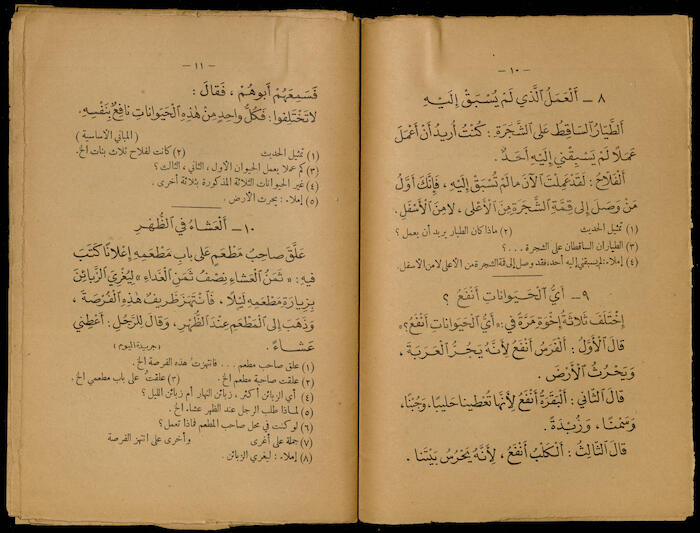 - ١٠ -
٨ - أَلْعَمَلُ الَّذي لَمْ يُسْبَقْ إِلَيْهِ
أَلطَّيَّارُ السَّاقِطُ عَلَى الشَّجَرَةِ: كُنْتُ أُريدُ أَنْ أَعْمَلَ
عَمَلًا لَمْ يَسْبِقْني إِلَيْهِ أَحَدٌ.
أَلْفَلَّاحُ: لَقَدْ عَمِلْتَ الْآنَ مَا لَمْ تُسْبَقْ إِلَيْهِ، فَإِنَّكَ أَوَّلُ
مَنْ وَصَلَ إِلى قِمَّةِ الشَّجَرَةِ مِنَ الْأَعْلى، لا مِنَ الْأَسْفَلِ.
(١) تمثيل الحديث (٢) ماذا كان الطيار يريد أن يعمل؟
(٣) الطياران الساقطان على الشجرة ...؟
(٤) إملاء: لم يسبقني إليه أحد، فقد وصل إلى قمة الشجرة من الأعلى لا من الاسفل.
٩ - أَيُّ الْحَيَوَاناتِ أَنْفَعُ؟
إِخْتَلَفَ ثَلاثَةُ إِخْوَةٍ مَرَّةً في: «أَيُّ الْحَيَوَاناتِ أَنْفَعُ؟»
قالَ الْأَوَّلُ: أَلْفَرَسُ أَنْفَعُ لِأَنَّهُ يَجُرُّ الْعَرَبَةَ،
وَيَحْرُثُ الْأَرْضَ.
قالَ الثَّاني: أَلْبَقَرَةُ أَنْفَعُ لِأَنَّها تُعْطينا حَليبًا، وَجُبْنًا،
وَسَمْنًا، وَزُبْدَةً.
قالَ الثَّالِثُ: أَلْكَلْبُ أَنْفَعُ، لِأَنَّهُ يَحْرُسُ بَيْتَنا.
- ١١ -
فَسَمِعَهُمْ أَبوهُمْ، فَقالَ:
لا تَخْتَلِفوا: فَكُلُّ واحِدٍ مِنْ هٰذِهِ الْحَيَوَاناتِ نافِعٌ بِنَفْسِهِ.
(المباني الاساسية)
(١) تمثيل الحديث (٢) كانت لفلاح ثلاث بنات الخ.
(٣) كم عملا يعمل الحيوان الاول، الثاني، الثالث؟
(٤) غير الحيوانات الثلاثة المذكورة بثلاثة أخرى.
(٥) إملاء: يحرث الأرض.
١٠ - أَلْعَشاءُ فِي الظُّهْرِ
عَلَّقَ صاحِبُ مَطْعَمٍ عَلى بابِ مَطْعَمِهِ إِعْلانًا كَتَبَ
فيهِ: «ثَمَنُ الْعَشاءِ نِصْفُ ثَمَنِ الْغَداءِ» لِيُغْرِيَ الزَّبائِنَ
بِزِيارَةِ مَطْعَمِهِ لَيْلًا، فَانْتَهَزَ ظَريفٌ هٰذِهِ الْفُرْصَةَ،
وَذَهَبَ إِلَى الْمَطْعَمِ عِنْدَ الظُّهْرِ، وَقالَ لِلرَّجُلِ: أَعْطِني
عَشاءً. (جريدة اليوم)
(١) علق صاحب مطعم ... فانتهزتُ هذه الفرصة الخ.
(٢) علقت صاحبة مطعم الخ. (٣) علقتُ على باب مطعمي الخ.
(٤) أي الزبائن أكثر، زبائن النهار أم زبائن الليل؟
(٥) لماذا طلب الرجل عند الظهر عشاء الخ.
(٦) لو كنت في محل صاحب المطعم فماذا تعمل؟
(٧) جملة على أغرى وأخرى على انتهز الفرصة
(٨) إملاء: ليغري الزبائن.